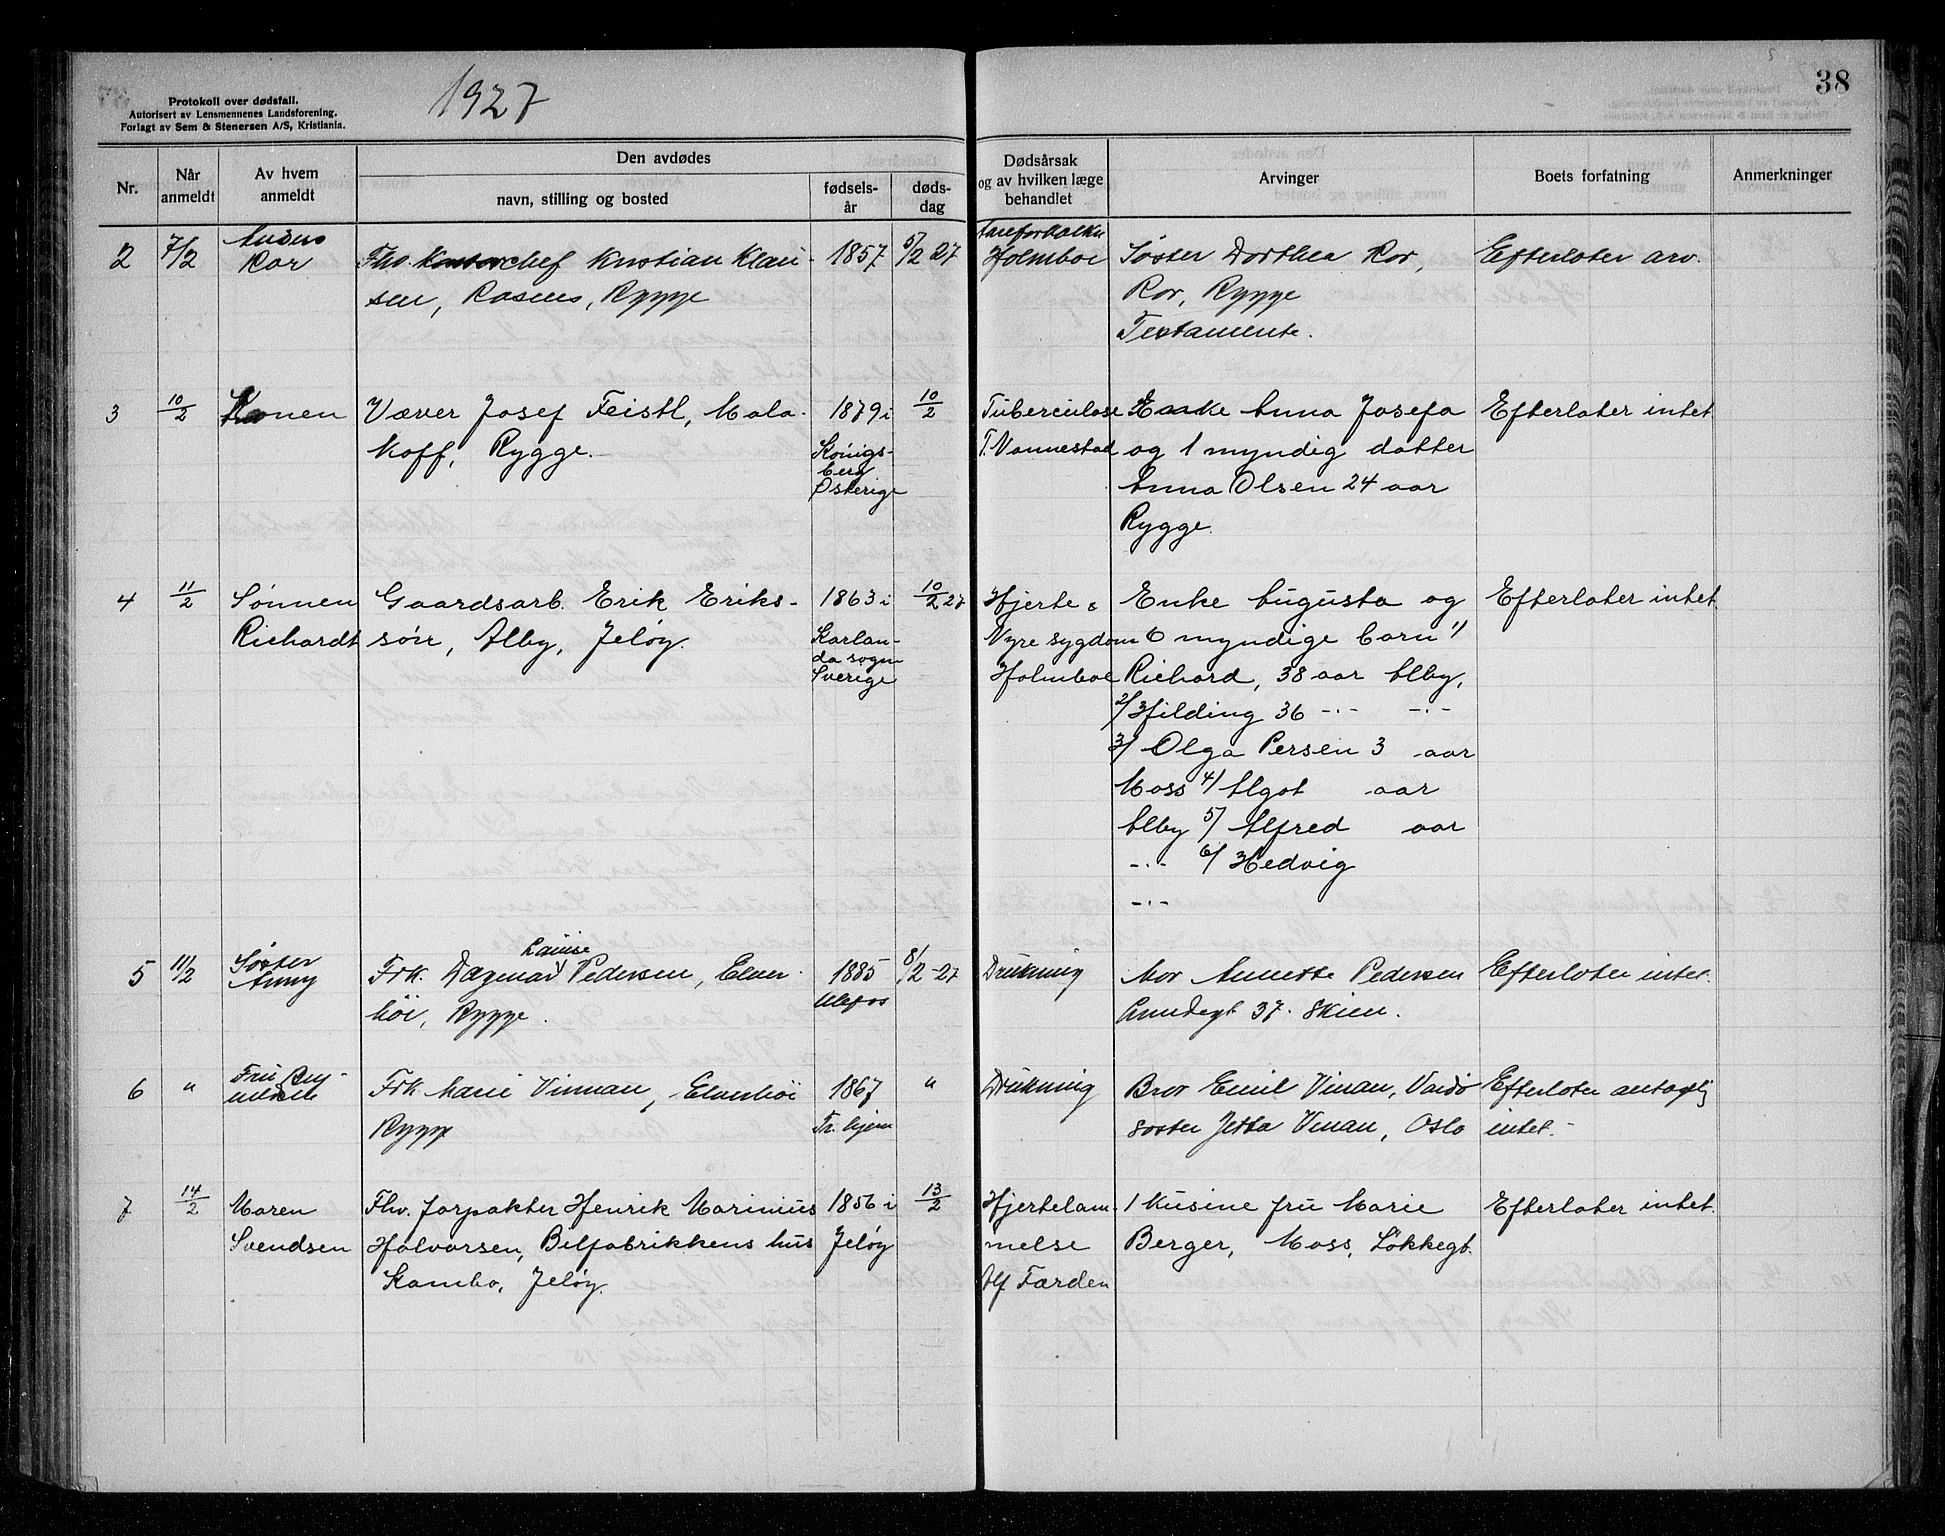 1927
38
Protokoll over dødsfall.
Autorisert av Lensmennenes Landsforening.
Forlagt av Sem & Stenersen A/S, Kristiania.
Nr.
Når
anmeldt
Av hvem
anmeldt
Den avdødes
navn, stilling og bosted
fødsels-
år
døds-
dag
Dødsårsak
og av hvilken læge
behandlet
Arvinger
Boets forfatning
Anmerkninger
2 7/2 Anders
Ror
Fhv. Kontorchef Kristian Klau-
sen, Rosens, Rygge
1857 5/2 27
Aareforkalkn
Holmboe
Søster Dorthea Ror,
Ror, Rygge
Testamente.
Efterlater arv.
3 10/2 Konen
Væver Josef Feistl, Mala-
koff, Rygge.
1879 i
Königs-
berg
Østerige
10/2
Tuberculose
T. Vannestad
Enke Anna Josefa
og 1 myndig datter
Anna Olsen 24 aar
Rygge.
Efterlater intet
4 11/2 Sønnen
Richardt
Gaardsarb. Erik Eriks-
sön, Alby, Jeløy.
1863 i
Karlan-
da sogn
Sverige
10/2 27
Hjerte &
Nyresygdom
Holmboe
Enke Augusta og
6 myndige barn 1/
Richard, 38 aar Alby,
2/ Hilding 36 -·- -·-
3/ Olga Persen 3 aar
Moss 4/ Algot aar
Alby 5/ Alfred aar
-·- 6/ Hedvig
-·-
Efterlater intet
5 11/2 Søster
Anny
Louise
Frk. Dagmar Pedersen, Elver-
höi, Rygge.
1885
Ulefos
8/2 -27
Drukning
Mor Annette Pedersen
Amdegt 37. Skien.
Efterlater intet.
6 " Fru
Frk. Marie Vinnan, Elverhöi
Rygge
1867
Tr. hjem
"
Drukning
Bror Emil Vinan, Vardö
søster Jetta Vinan, Oslo
Efterlater antagelig
intet.-
7 14/2 Maren
Svendsen
Fhv. forpakter Henrik Marinius
Halvorsen, Belfabrikkens hus
Kambo, Jeløy.
1856 i
Jeløy
13/2
Hjertelam-
melse
Alf Farden
1 kusine fru Marie
Berger, Moss, Løkkegt.
Efterlater intet.